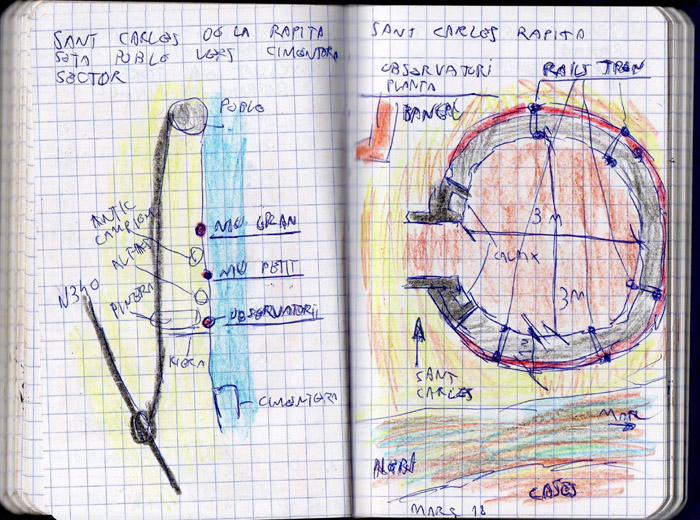 SANT CARLES DE LA RAPITA
SOTA POBLE VERS CIMENTERA
SECTOR
POBLE
ANTIC
CAMPING
NIU GRAN
ALFACS
NIU PETIT
N340
PINEDA
OBSERVATORI
RIERA
CIMENTERA
SANT CARLES RAPITA
OBSERVATORI
PLANTA
RAILS TREN
BANCAL
3 M
3 M
1 M
SANT
CARLES
MAR
CASES
MARÇ 18